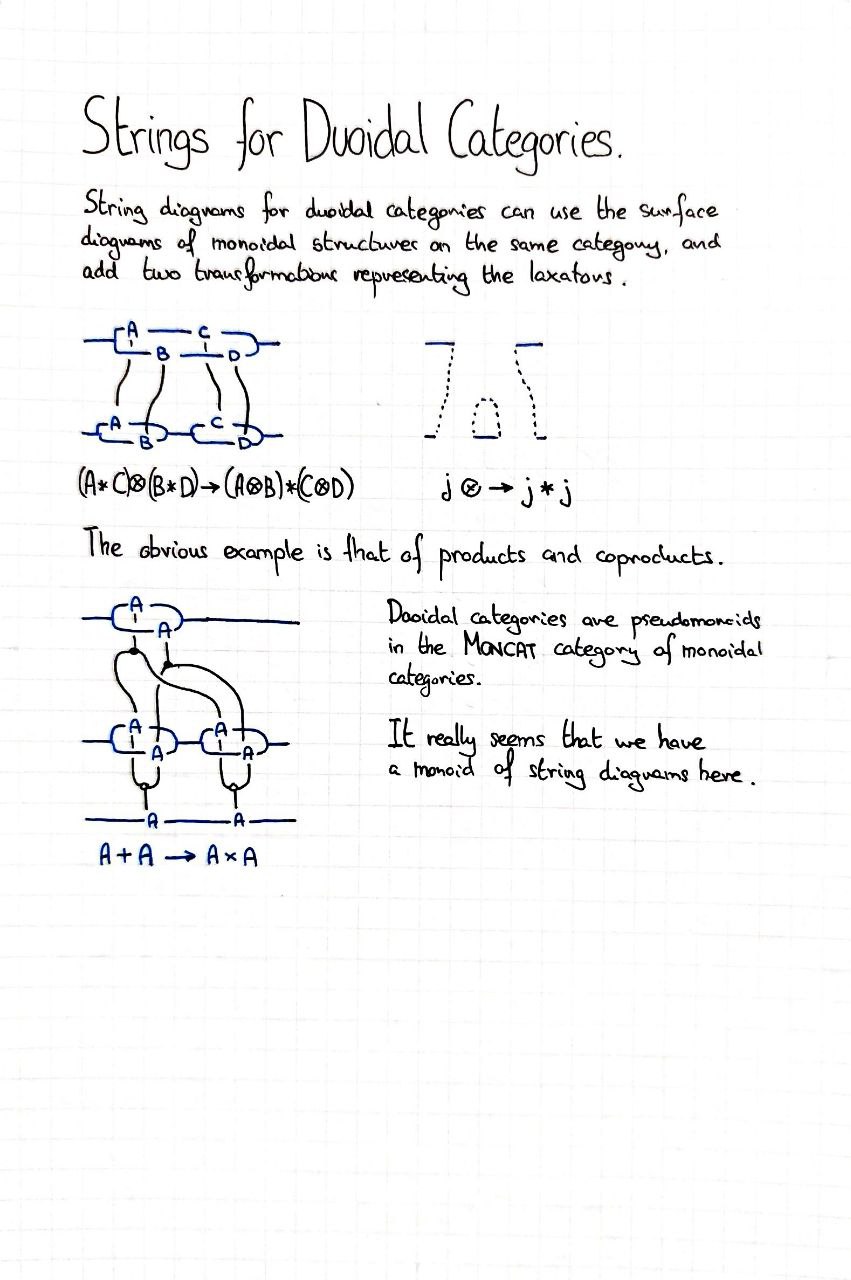 Strings for Duoidal Categories.
String diagrams for duoidal categories can use the surface
diagrams of monoidal structures on the same category, and
add two transformations representing the laxators.
A C
B D
A C
B D
(A*C)⊗(B*D)→(A⊗B)*(C⊗D)
j⊗→j*j
The obvious example is that of products and coproducts.
A
A
A A
A A
A A
A+A → A×A
Dooidal categories are pseudomonoids
in the MONCAT category of monoidal
categories.
It really seems that we have
a monoid of string diagrams here.